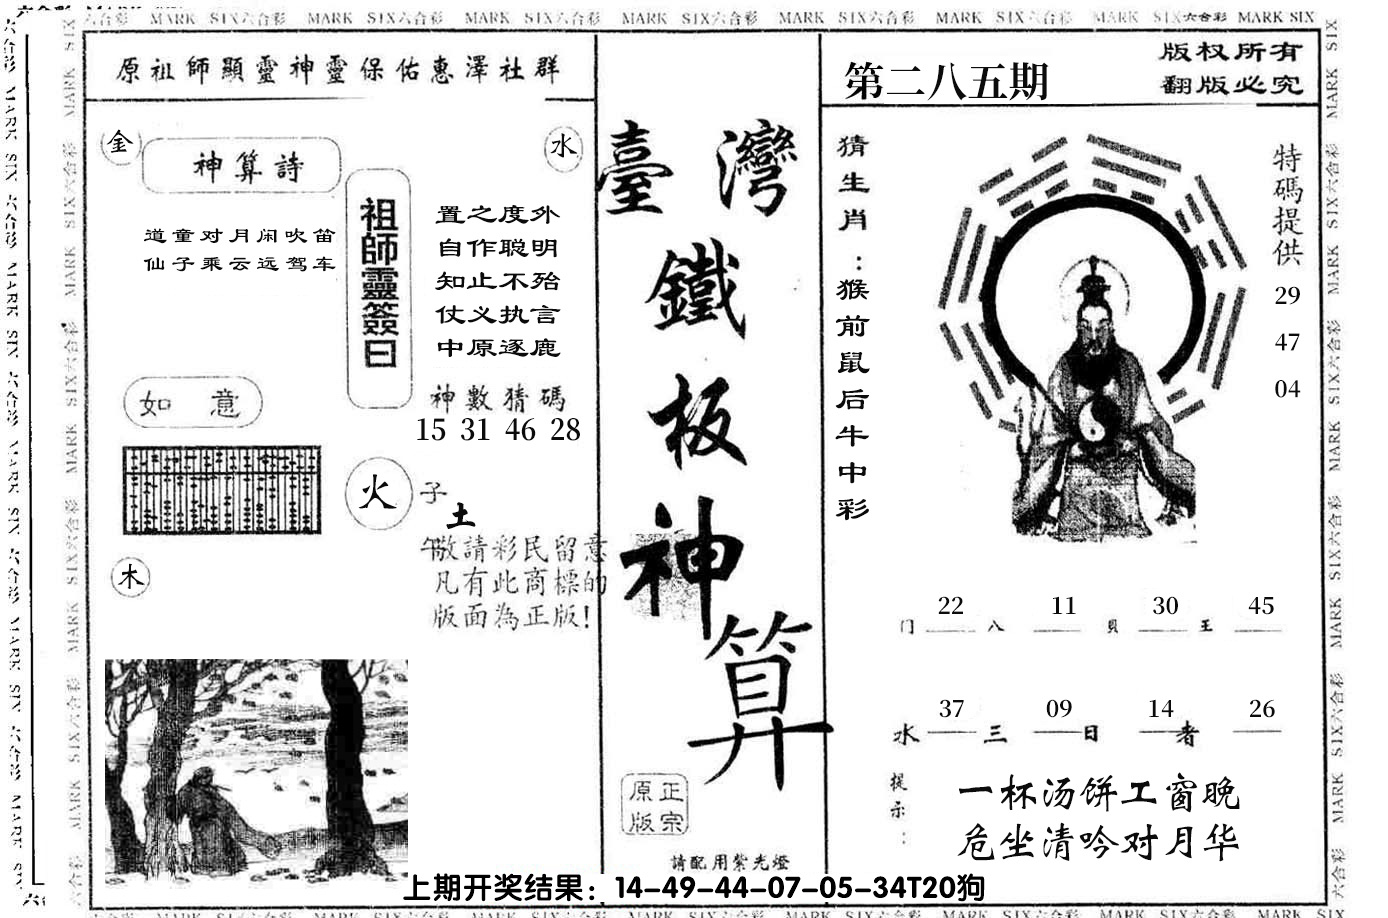 原祖師顯靈神靈保佑惠澤社群
金
水
神算詩
道童对月闲吹笛
仙子乘云远驾车
祖師靈簽曰
置之度外
自作聪明
知止不殆
仗义执言
中原逐鹿
神數猜碼
15 31 46 28
如意
火
子
土
午
木
敬請彩民留意
凡有此商標的
版面為正版!
臺灣
鐵
板
神
算
原正
版宗
請配用紫光燈
第二八五期
版权所有
翻版必究
猜生肖：猴前鼠后牛中彩
特碼提供
29
47
04
22 11 30 45
门 八 贝 王
37 09 14 26
水 三 日 者
提示：
一杯汤饼工窗晚
危坐清吟对月华
上期开奖结果：14-49-44-07-05-34T20狗
MARK SIX六合彩 MARK SIX六合彩 MARK SIX六合彩 MARK SIX六合彩 MARK SIX六合彩 MARK SIX六合彩 MARK SIX六合彩 MARK SIX